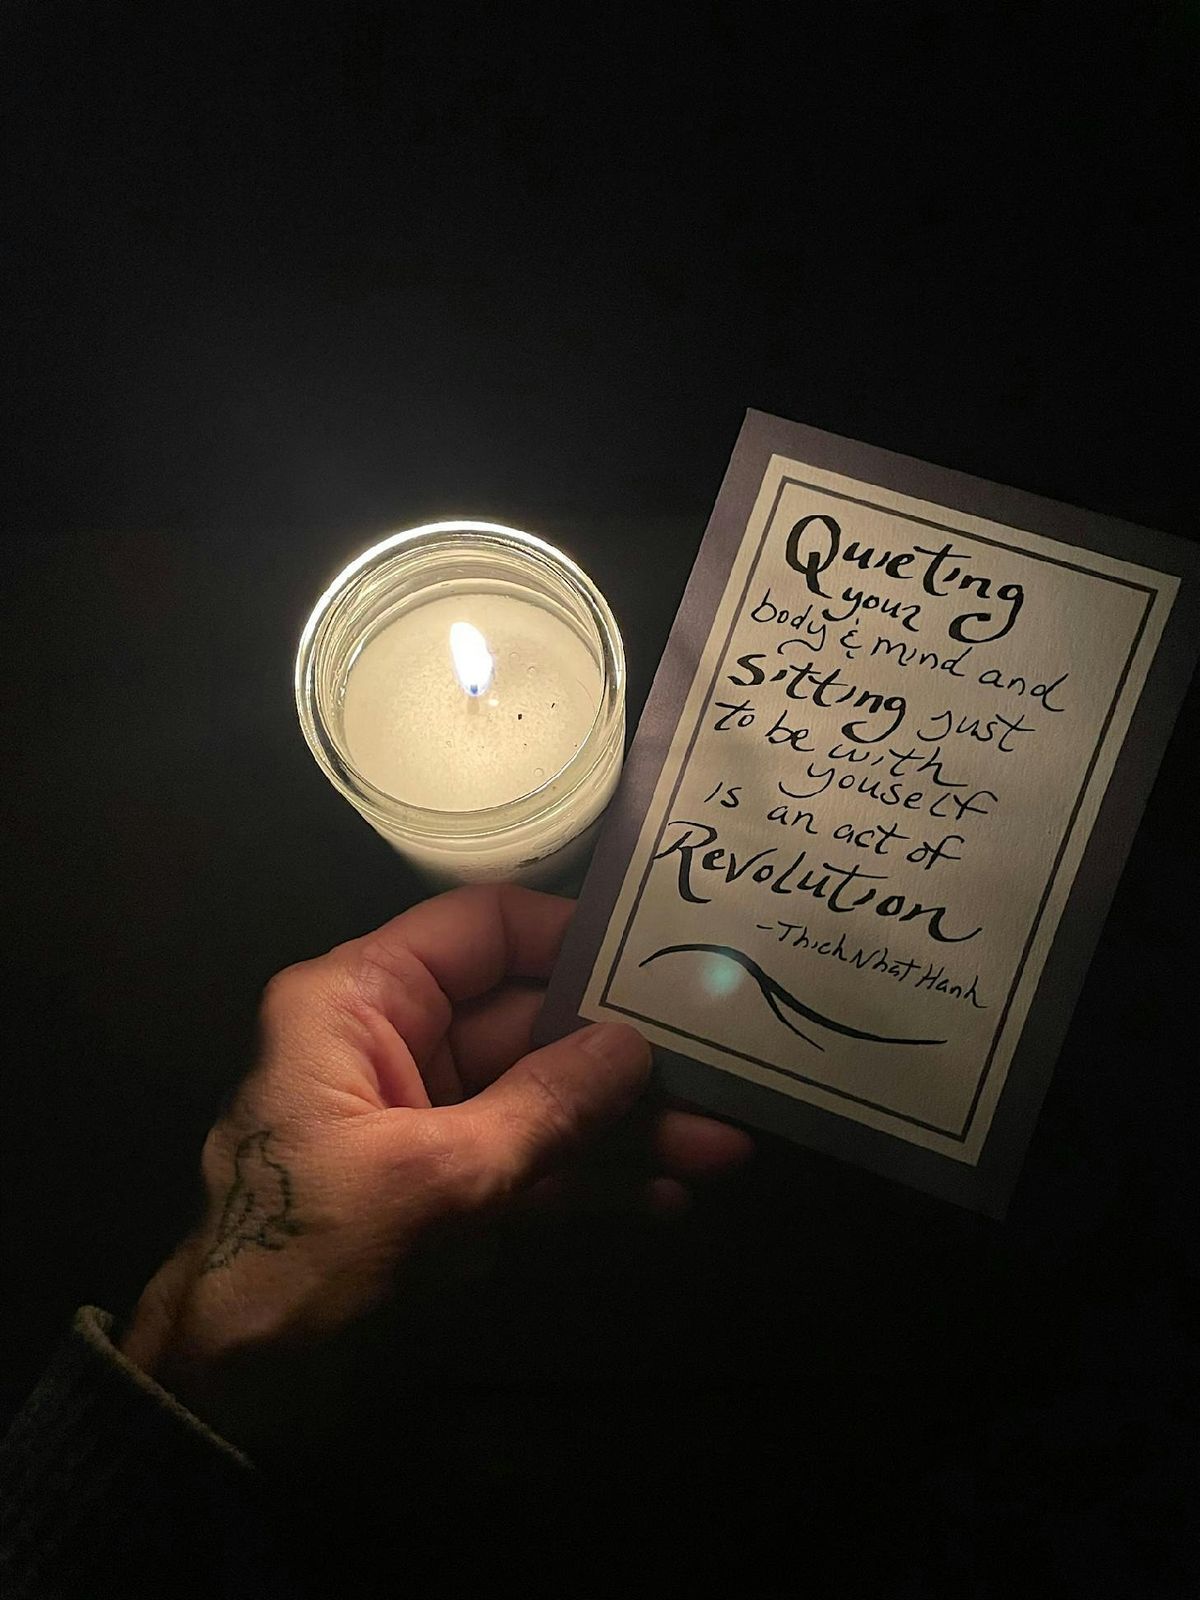 Quieting
your
body & mind and
Sitting just
to be with
youself
is an act of
Revolution
-Thich Nhat Hanh